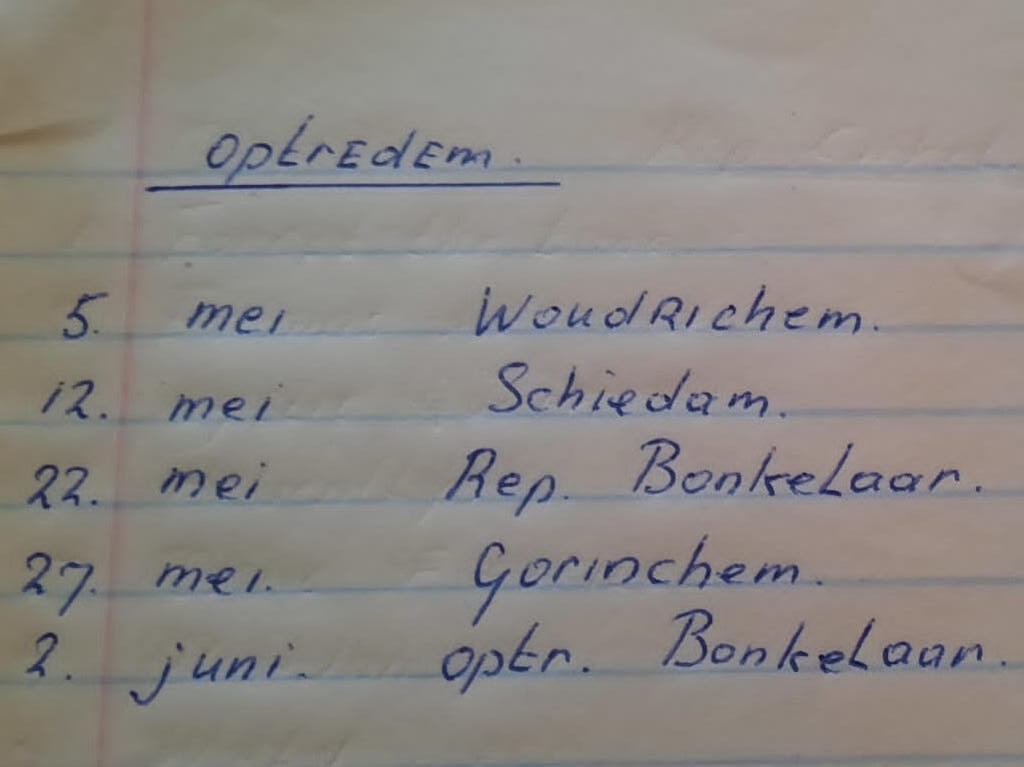 optredem.
5. mei Woudrichem.
12. mei Schiedam.
22. mei Rep. Bonkelaar.
27. mei. Gorinchem.
2. juni. optr. Bonkelaar.